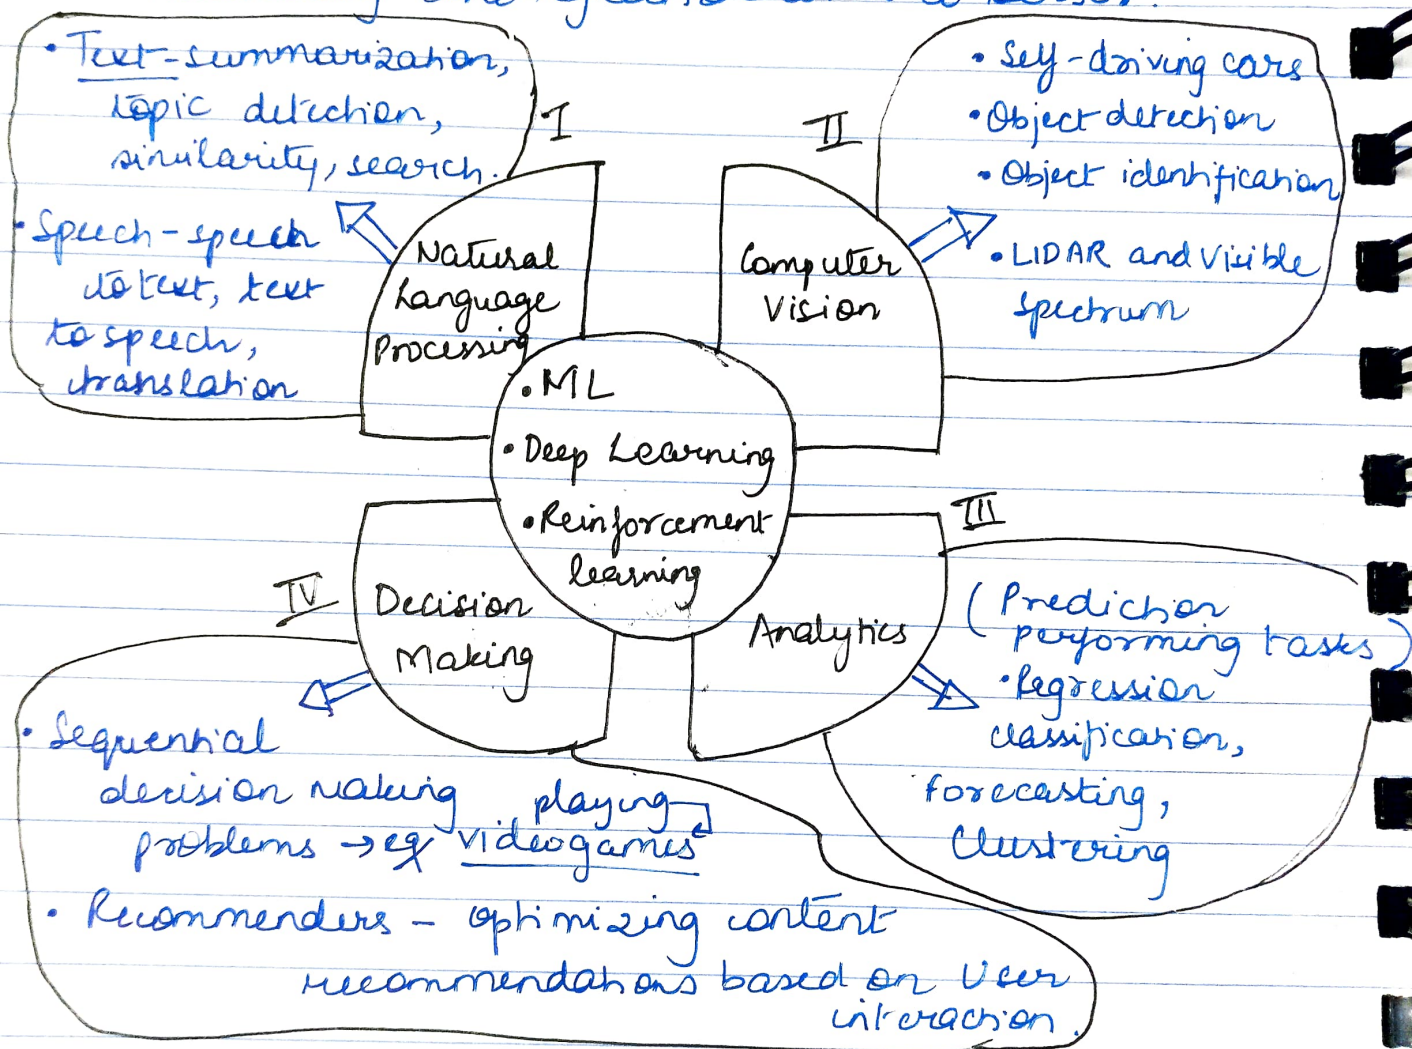 • Text-summarization,
topic detection,
similarity, search.
• Speech-speech
to text, text
to speech,
translation
I
Natural
Language
Processing
II
Computer
Vision
• Self-driving cars
• Object detection
• Object identification
• LIDAR and Visible
spectrum
• ML
• Deep Learning
• Reinforcement
learning
III
Analytics
( Prediction
performing tasks )
• Regression
classification,
forecasting,
Clustering
IV
Decision
Making
• Sequential
decision making
problems → eg playing
videogames
• Recommenders - optimizing content
recommendations based on User
interaction.